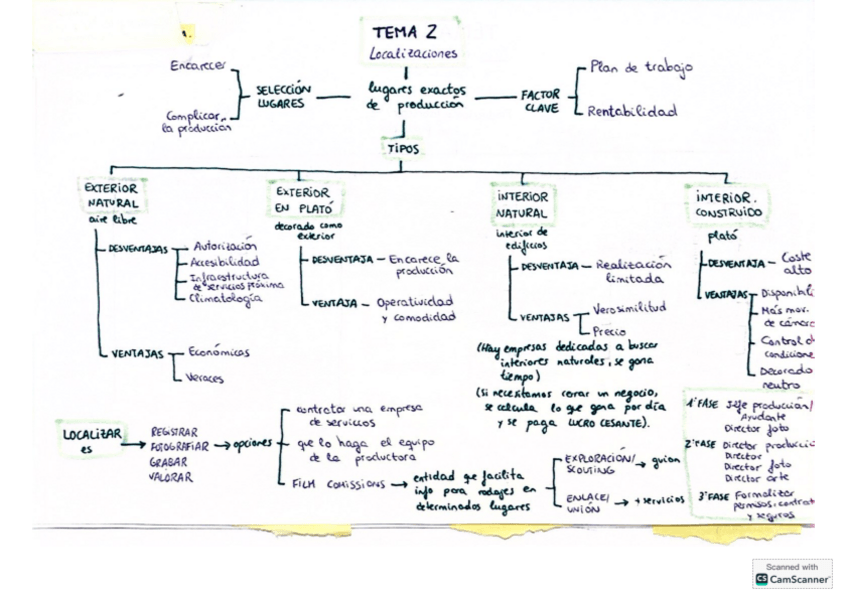 TEMA 2
Localizaciones
lugares exactos
de producción
SELECCIÓN
LUGARES
Encarecer
Complicar
la producción
FACTOR
CLAVE
Plan de trabajo
Rentabilidad
TIPOS
EXTERIOR
NATURAL
aire libre
DESVENTAJAS
Autorización
Accesibilidad
Infraestructura
de servicios próxima
Climatología
VENTAJAS
Económicas
Veraces
EXTERIOR
EN PLATÓ
decorado como
exterior
DESVENTAJA - Encarece la
producción
VENTAJA - Operatividad
y comodidad
INTERIOR
NATURAL
interior de
edificios
DESVENTAJA - Realización
limitada
VENTAJAS
Verosimilitud
Precio
(Hay empresas dedicadas a buscar
interiores naturales, se gana
tiempo)
(Si necesitamos cerrar un negocio,
se calcula lo que gana por día
y se paga LUCRO CESANTE).
INTERIOR.
CONSTRUIDO
plató
DESVENTAJA - Coste
alto
VENTAJAS
Disponibili
Más mov.
de cámara
Control d
condicione
Decorado
neutro
LOCALIZAR
es
REGISTRAR
FOTOGRAFIAR
GRABAR
VALORAR
opciones
contratar una empresa
de servicios
que lo haga el equipo
de la productora
FILM COMISSIONS → entidad que facilita
info para rodajes en
determinados lugares
EXPLORACIÓN/
SCOUTING → guion
ENLACE/
UNIÓN → + servicios
1ª FASE Jefe producción/
Ayudante
Director foto
2ª FASE Director producció
Director
Director foto
Director arte
3ª FASE Formalizar
permisos, contrat
y seguros
Scanned with
CS CamScanner